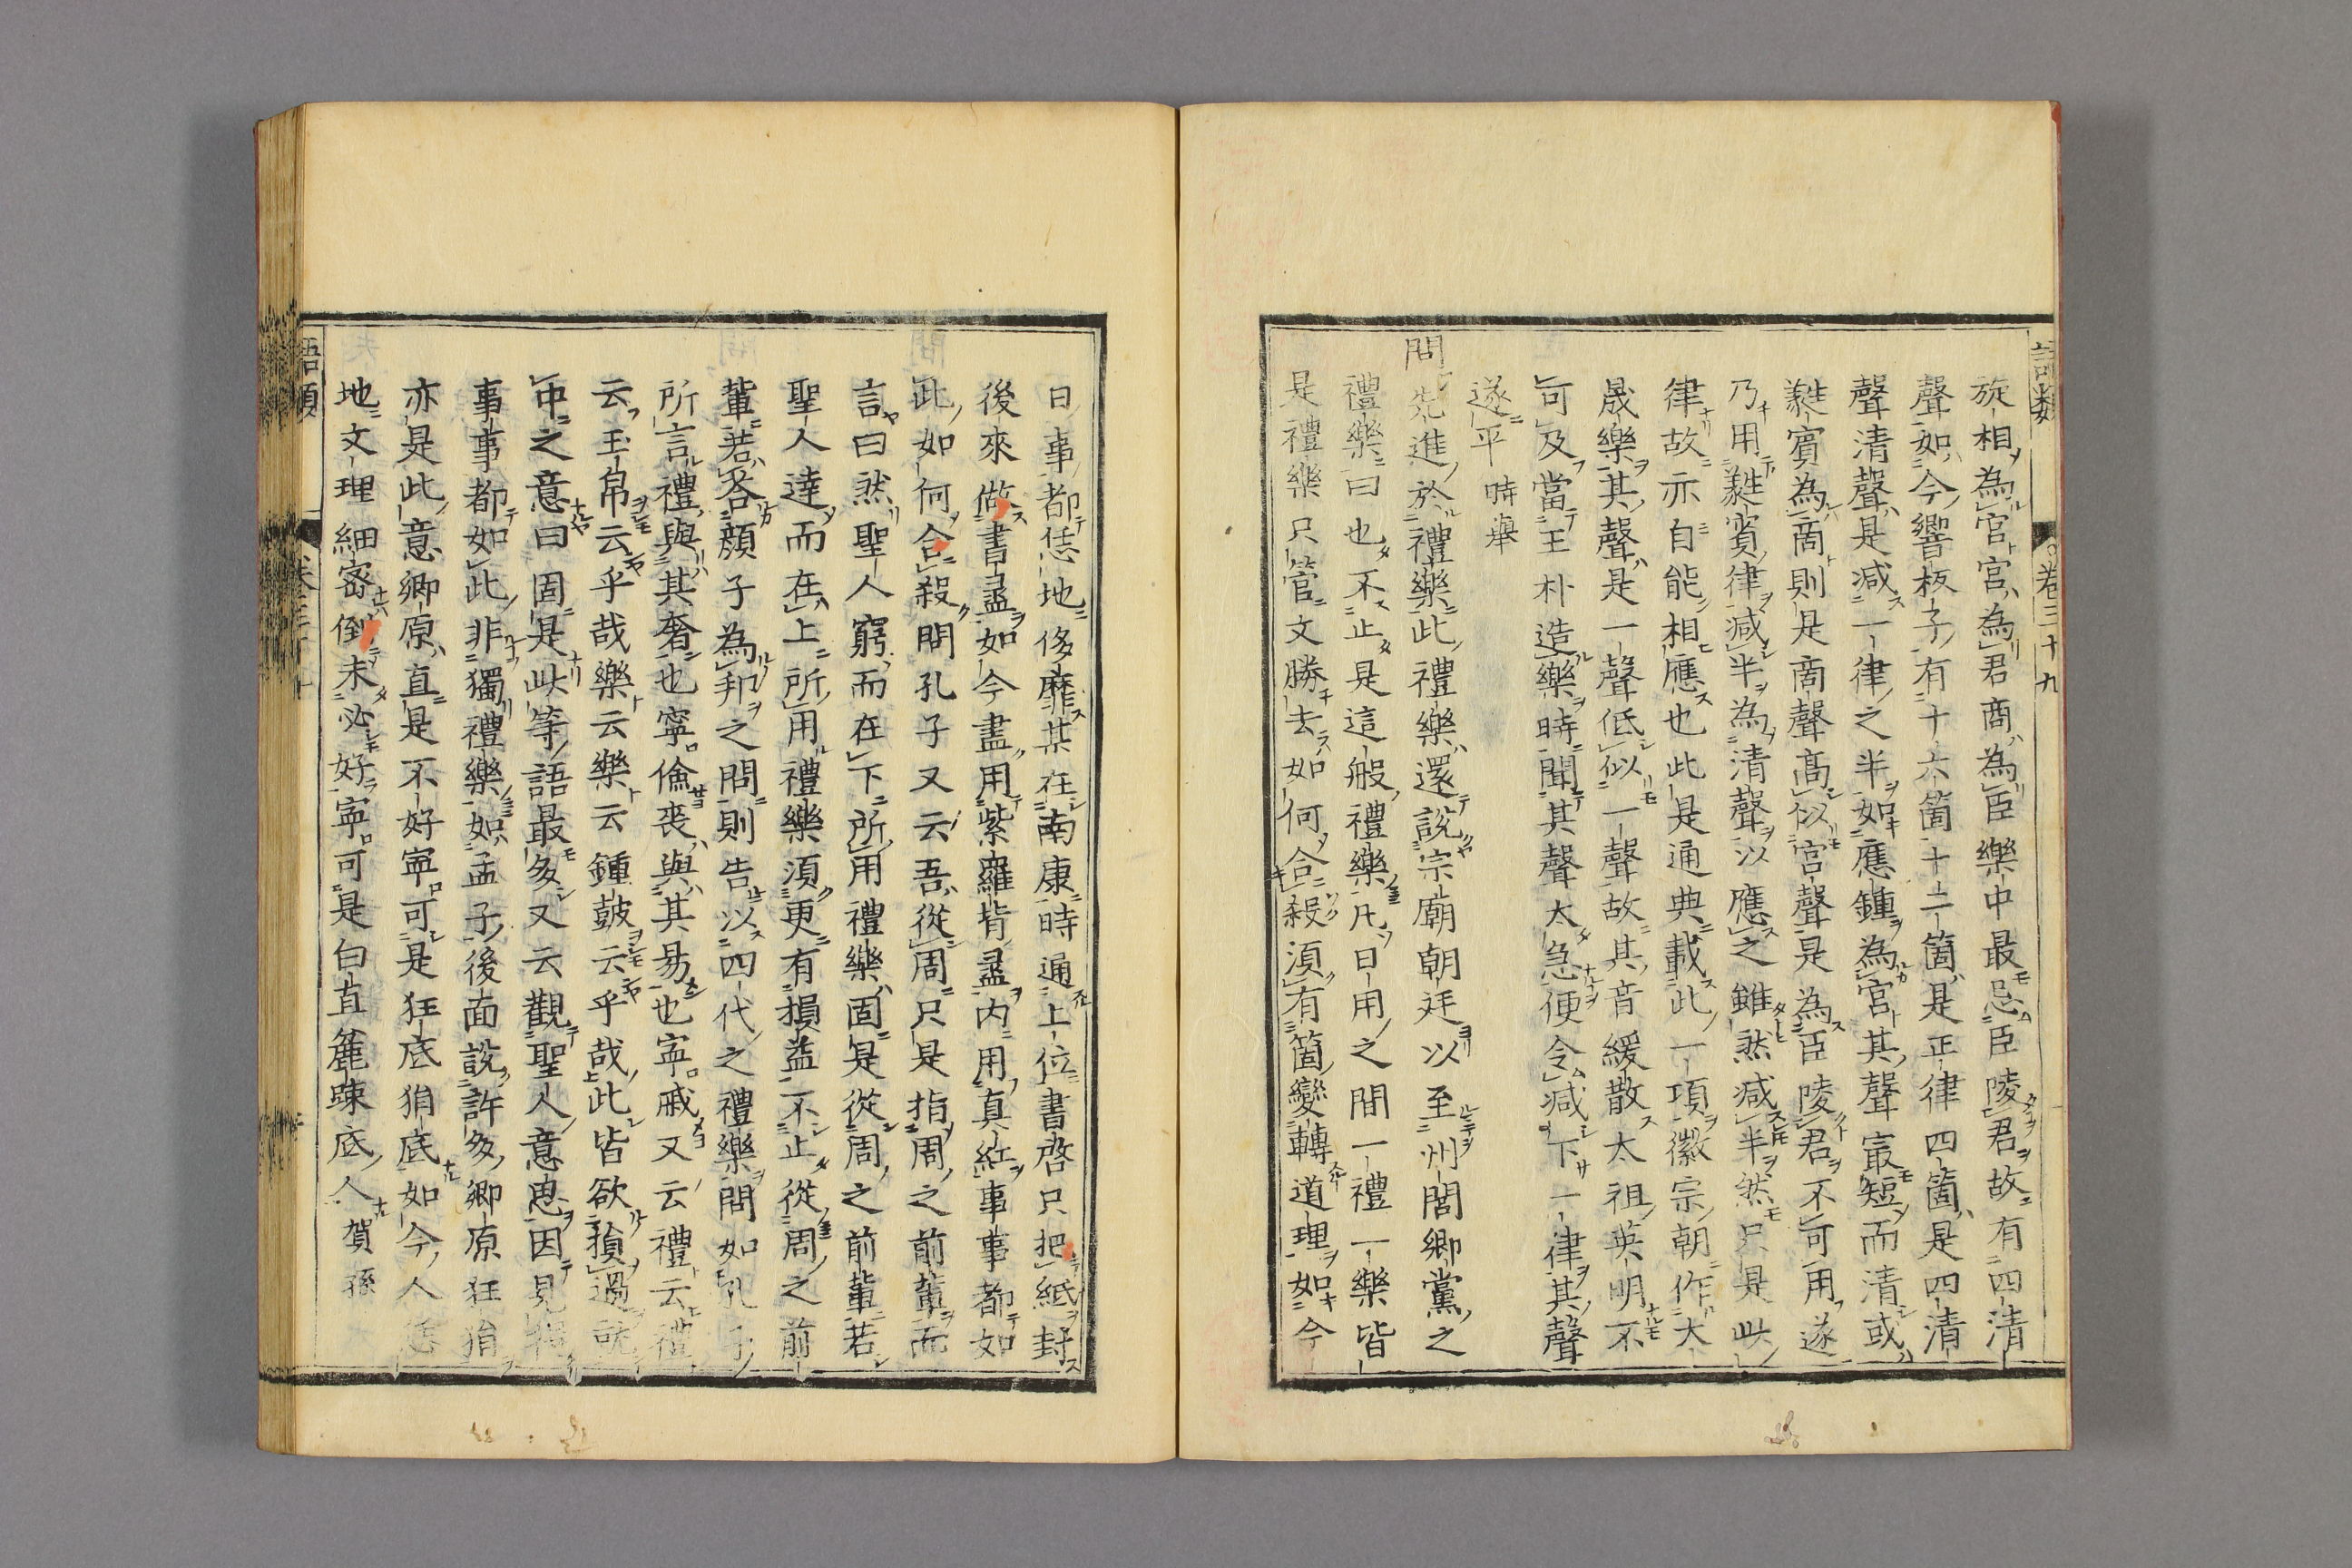 語類 卷三十九
旋相為宮宮為君商為臣樂中最忌臣陵君故有四清
聲如今響板子有十六箇十二箇是正律四箇是四清
聲清聲是減一律之半如應鍾為宮其聲冣短而清或
蕤賓為商則是商聲高似宮聲是為臣陵君不可用遂
乃用蕤賓律減半為清聲以應之雖然減半然只是此
律故亦自能相應也此是通典載此一項徽宗朝作大
晟樂其聲是一聲低似一聲故其音緩散太祖英明不
可及當王朴造樂時聞其聲太急便令減下一律其聲
遂平 時舉
問先進於禮樂此禮樂還說宗廟朝廷以至州閭鄉黨之
禮樂曰也不止是這般禮樂凡日用之間一禮一樂皆
是禮樂只管文勝去如何合殺須有箇變轉道理如今
日事都恁地侈靡某在南康時通上位書啓只把紙封
後來做書盡如今盡用紫羅背盝內用真紅事事都如
此如何合殺問孔子又云吾從周只是指周之前輩而
言曰然聖人窮而在下所用禮樂固是從周之前輩若
聖人達而在上所用禮樂須更有損益不止從周之前
輩若答顏子為邦之問則告以四代之禮樂問如孔子
所言禮與其奢也寧儉喪與其易也寧戚又云禮云禮
云玉帛云乎哉樂云樂云鍾鼓云乎哉此皆欲損過就
中之意曰固是此等語最多又云觀聖人意思因見得
事事都如此非獨禮樂如孟子後面說許多鄉原狂狷
亦是此意鄉原直是不好寧可是狂底狷底如今人恁
地文理細密倒未必好寧可是白直麄踈底人 賀孫
語類